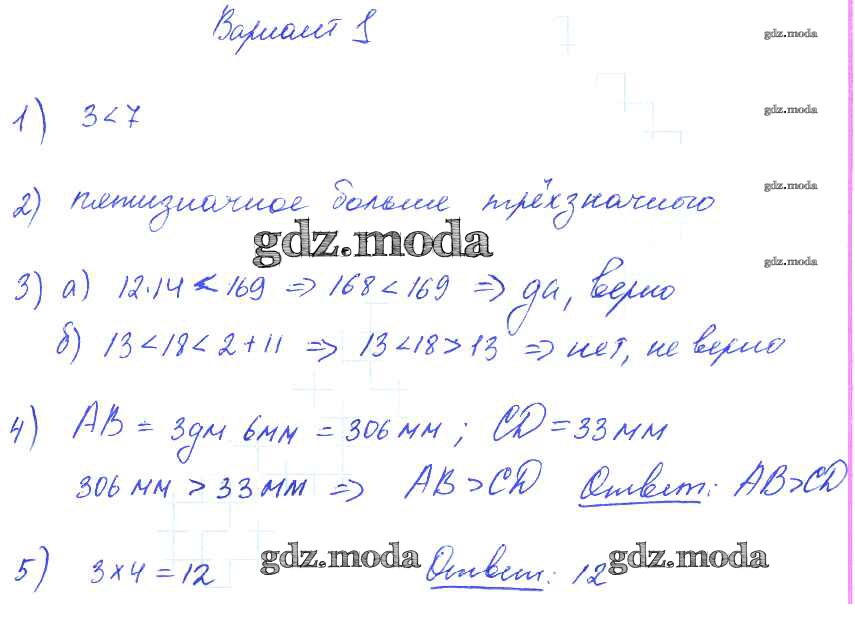 Вариант 1
gdz.moda
1) 3<7
gdz.moda
2) пятизначное больше трёхзначного
gdz.moda
gdz.moda
gdz.moda
3) а) 12·14 < 169 => 168 < 169 => да, верно
б) 13<18<2+11 => 13<18>13 => нет, не верно
4) AB = 3дм 6мм = 306 мм ; CD = 33 мм
306 мм > 33 мм => AB > CD Ответ: AB>CD
5) 3×4=12 Ответ: 12
gdz.moda
gdz.moda